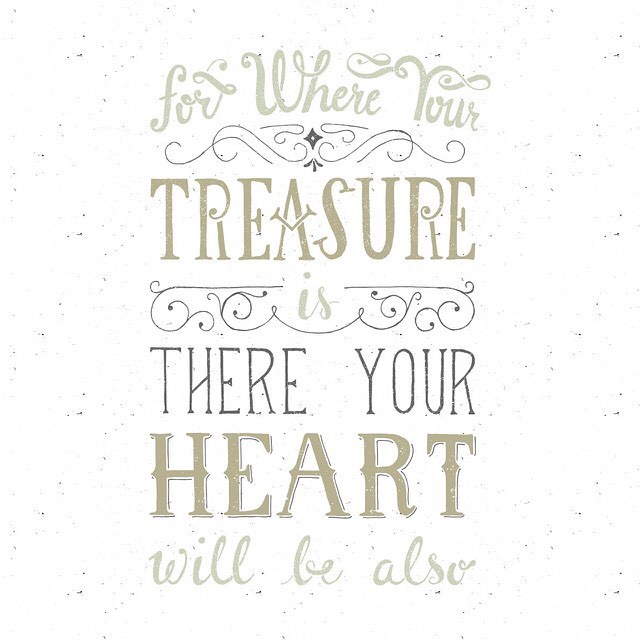 for Where Your
TREASURE
is
THERE YOUR
HEART
will be also